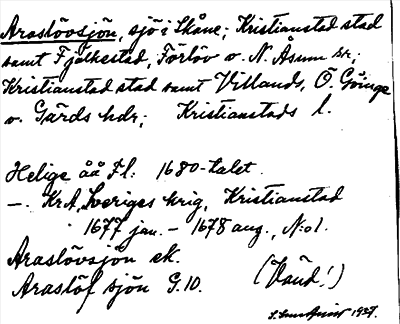 Araslövsjön, sjö i Skåne; Kristianstad stad
samt Fjälkestad, Färlöv o. N. Åsum sn;
Kristianstad stad samt Villands, Ö. Göinge
o. Gärds hdr; Kristianstads l.
Helige åå Fl: 1680-talet.
—. KrA, Sveriges krig, Kristianstad
1677 jan. – 1678 aug., N:o 1.
Araslövsjön ek.
Araslöf sjön G.10. (Vänd!)
1927.